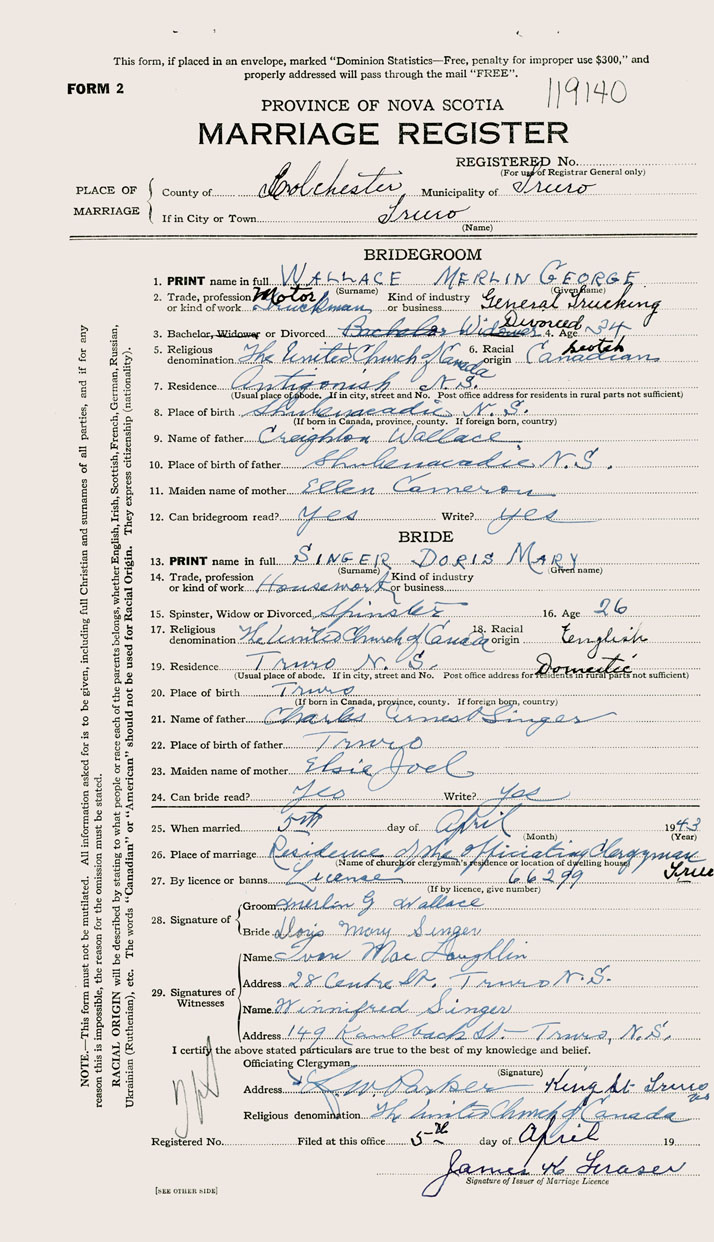 This form, if placed in an envelope, marked "Dominion Statistics—Free, penalty for improper use $300," and
properly addressed will pass through the mail "FREE".
FORM 2
119140
PROVINCE OF NOVA SCOTIA
MARRIAGE REGISTER
REGISTERED No.
(For use of Registrar General only)
PLACE OF MARRIAGE
County of Colchester Municipality of Truro
If in City or Town Truro
(Name)
BRIDEGROOM
1. PRINT name in full WALLACE MERLIN GEORGE
(Surname) (Given name)
2. Trade, profession or kind of work Motor Truckman Kind of industry or business General Trucking
3. Bachelor, Widower or Divorced Bachelor Widower Divorced 4. Age 34
5. Religious denomination The United Church of Canada 6. Racial origin Canadian Scotch
7. Residence Antigonish N.S.
(Usual place of abode. If in city, street and No. Post office address for residents in rural parts not sufficient)
8. Place of birth Shubenacadie N.S.
(If born in Canada, province, county. If foreign born, country)
9. Name of father Creighton Wallace
10. Place of birth of father Shubenacadie N.S.
11. Maiden name of mother Ellen Cameron
12. Can bridegroom read? Yes Write? Yes
BRIDE
13. PRINT name in full SINGER DORIS MARY
(Surname) (Given name)
14. Trade, profession or kind of work Housework Kind of industry or business
15. Spinster, Widow or Divorced Spinster 16. Age 26
17. Religious denomination The United Church of Canada 18. Racial origin English
19. Residence Truro N.S. Domestic
(Usual place of abode. If in city, street and No. Post office address for residents in rural parts not sufficient)
20. Place of birth Truro
(If born in Canada, province, county. If foreign born, country)
21. Name of father Charles Ernest Singer
22. Place of birth of father Truro
23. Maiden name of mother Elsie Joel
24. Can bride read? Yes Write? Yes
25. When married 5th day of April 1943
(Month) (Year)
26. Place of marriage Residence of the officiating Clergyman
(Name of church or clergyman's residence or location of dwelling house)
27. By licence or banns License 66299
(If by licence, give number)
28. Signature of
Groom Merlin G Wallace
Bride Doris Mary Singer
29. Signatures of Witnesses
Name Ivan MacLaughlin
Address 28 Centre St. Truro N.S.
Name Winnifred Singer
Address 149 Kaulback St – Truro, N.S.
I certify the above stated particulars are true to the best of my knowledge and belief.
Officiating Clergyman
(Signature)
Address Parker King St Truro
Religious denomination The United Church of Canada
Registered No. Filed at this office 5th day of April 19
James K Fraser
Signature of Issuer of Marriage Licence
[SEE OTHER SIDE]
NOTE.—This form must not be mutilated. All information asked for is to be given, including full Christian and surnames of all parties, and if for any
reason this is impossible, the reason for the omission must be stated.
RACIAL ORIGIN will be described by stating to what people or race each of the parents belongs, whether English, Irish, Scottish, French, German, Russian,
Ukrainian (Ruthenian), etc. The words "Canadian" or "American" should not be used for Racial Origin. They express citizenship (nationality).